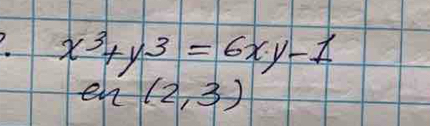 x³+y³ = 6x.y-1
en (2,3)